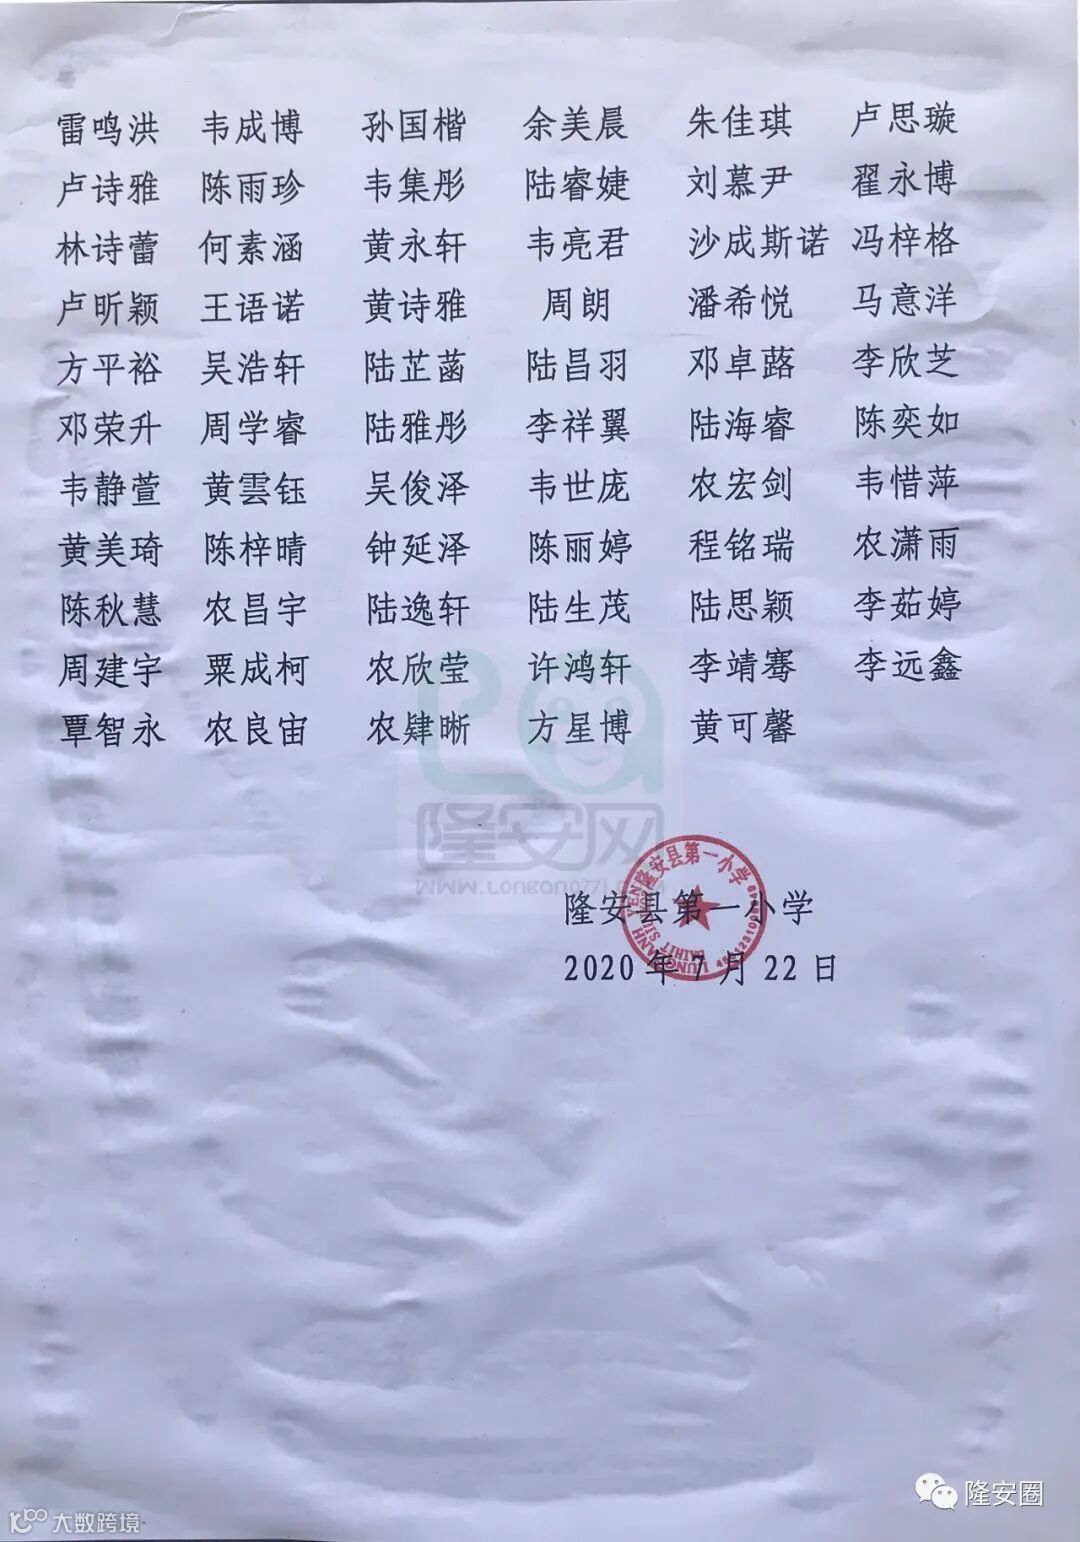 雷鸣洪 韦成博 孙国楷 余美晨 朱佳琪 卢思璇
卢诗雅 陈雨珍 韦集彤 陆睿婕 刘慕尹 翟永博
林诗蕾 何素涵 黄永轩 韦亮君 沙成斯诺 冯梓格
卢昕颖 王语诺 黄诗雅 周朗 潘希悦 马意洋
方平裕 吴浩轩 陆芷菡 陆昌羽 邓卓蕗 李欣芝
邓荣升 周学睿 陆雅彤 李祥翼 陆海睿 陈奕如
韦静萱 黄雲钰 吴俊泽 韦世庞 农宏剑 韦惜萍
黄美琦 陈梓晴 钟延泽 陈丽婷 程铭瑞 农潇雨
陈秋慧 农昌宇 陆逸轩 陆生茂 陆思颖 李茹婷
周建宇 粟成柯 农欣莹 许鸿轩 李靖骞 李远鑫
覃智永 农良宙 农肄晰 方星博 黄可馨
隆安网
隆安县第一小学
隆安县第一小学
2020 年 7 月 22 日
隆安圈
大数跨境